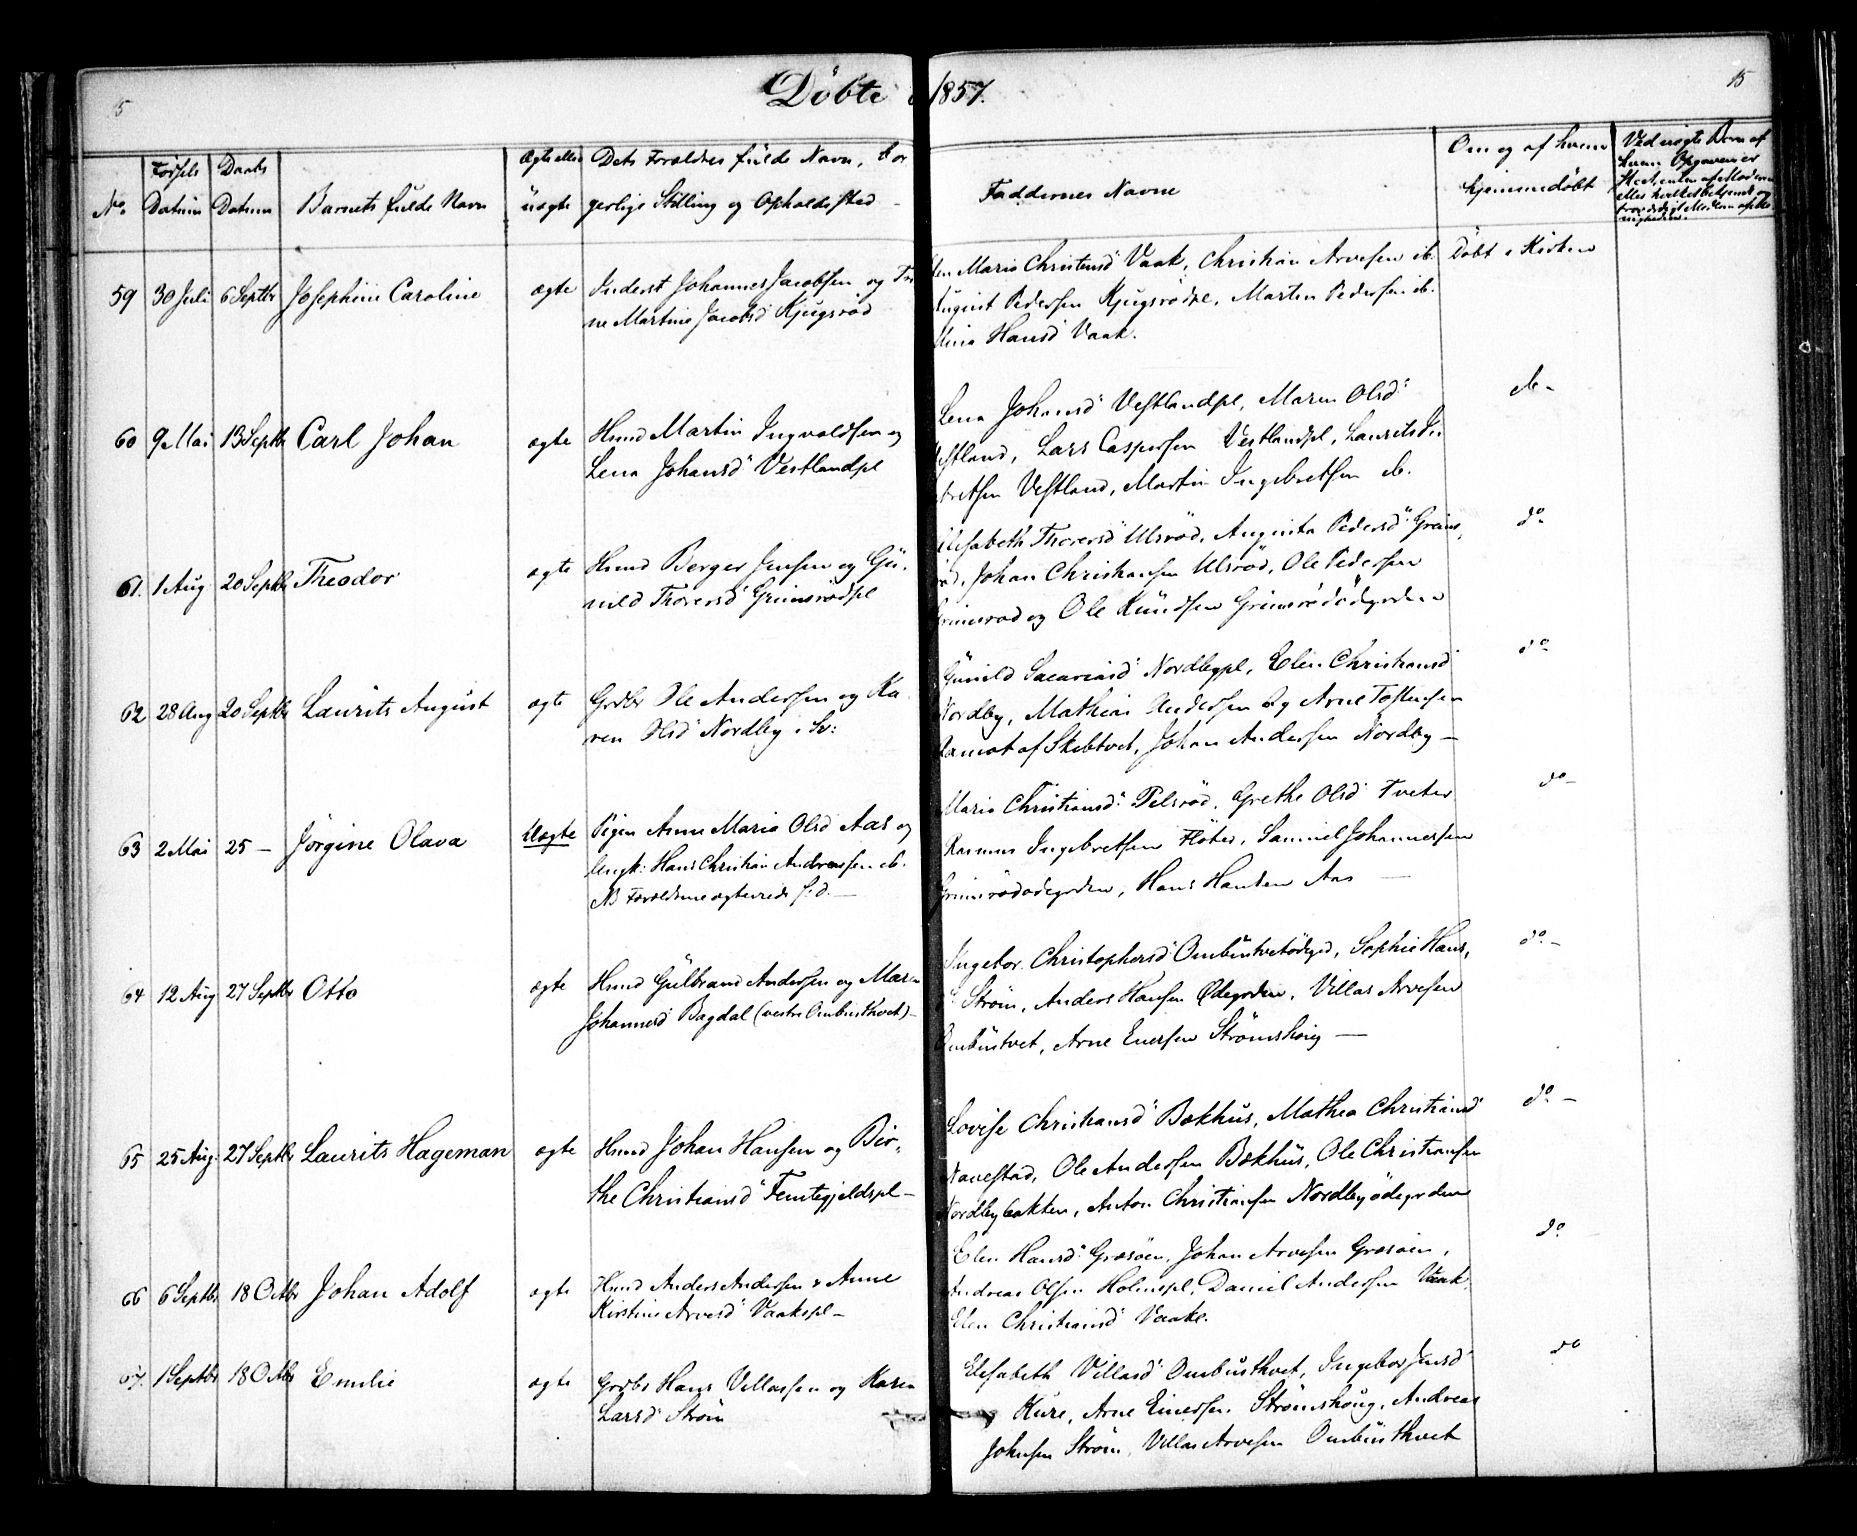 5 Döbte 1857. 15
No. Fødsels Datum Daabs Datum Barnets fulde Navn Ægte eller uægte Dets Forældres fulde Navn, bor
gerlige Stilling og Opholdssted Faddernes Navne Om og af hvem hjemmedöbt
59 30 Juli 6 Septbr Josephine Caroline ægte Inderst Johannes Jacobsen og
ne Martine Jacobsd Kjugsrød
Maria Christensd Vaak, Christian Arvesen ib. Döbt i Kirken
August Pedersen Kjugsrødpl, Martin Pedersen ib.
Hansd Vaak.
60 9 Mai 13 Septbr Carl Johan ægte Husmd Martin Ingvaldsen og
Lena Johansd Vestlandpl
Lena Johansd Vestlandpl, Maren Olsd ib.
Vestland, Lars Caspersen Vestlandpl, Laurits In
bretsen Vestland, Martin Ingebretsen ib.
61. 1 Aug 20 Septbr Theodor ægte Husmd Berger Jensen og Gu
nild Thorersd Grimsrødpl
Elisabeth Thorersd Ulsrød, Augusta Pedersd Grims do
rød, Johan Christiansen Ulsrød, Ole Pedersen
Grimsrød og Ole Knudsen Grimsrødødegården
62 28 Aug 20 Septbr Laurits August ægte Grdbr Ole Andersen og Ka
ren Olsd Nordby i Sv:
Gunild Sacariasd Nordbypl, Elen Christiansd do
Nordby, Mathias Andersen og Arne Tostensen
Ramot af Skibtvet, Johan Andersen Nordby —
63 2 Mai 25 — Jörgine Olava Uægte Pigen Anne Maria Olsd Aas og
Ungk: Hans Christian Andreassen ib.
NB Forældrene ægteviede s: d. —
Maria Christiansd Pilsrød, Grethe Olsd Tveter do —
Rasmus Ingebretsen Flöter, Samuel Johannessen
Grimsrødødegården, Hans Hansen Aas —
64 12 Aug 27 Septbr Otto ægte Husmd Gulbrand Andersen og Maren
Johannesd Bagdal (vestre Ombustvet) —
Ingebor Christophersd Ombustvetödegd, Sophie Hans, do —
d Ström, Anders Hansen Ødegården, Villas Arvesen
Ombustvet, Arne Enersen Strömshoug —
65 25 Aug. 27 Septbr Laurits Hageman ægte Husmd Johan Hansen og Bir
the Christiansd Femtegjeldspl —
Lovise Christiansd Bækhus, Mathea Christiansd do —
Navestad, Ole Andersen Bækhus, Ole Christiansen
Nordbybakken, Anton Christiansen Nordbyödegården
66 6 Septbr 18 Octbr Johan Adolf ægte Husmd Anders Andersen & Anne
Kirstine Arvesd Vaakspl —
Elen Hansd Grasöen, Johan Arvesen Grasöen, do
Andreas Olsen Holmspl, Daniel Andersen Vaak,
Elen Christiansd Vaak.
67. 1 Septbr 18 Octbr Emilie ægte Grdbr Hans Villassen og Karen
Larsd Ström
Elisabeth Villasd Ombusthvet, Ingebor Jensd do
Kure, Arne Einersen Strömshoug, Andreas
Johnsen Ström, Villas Arvesen Ombusthvet